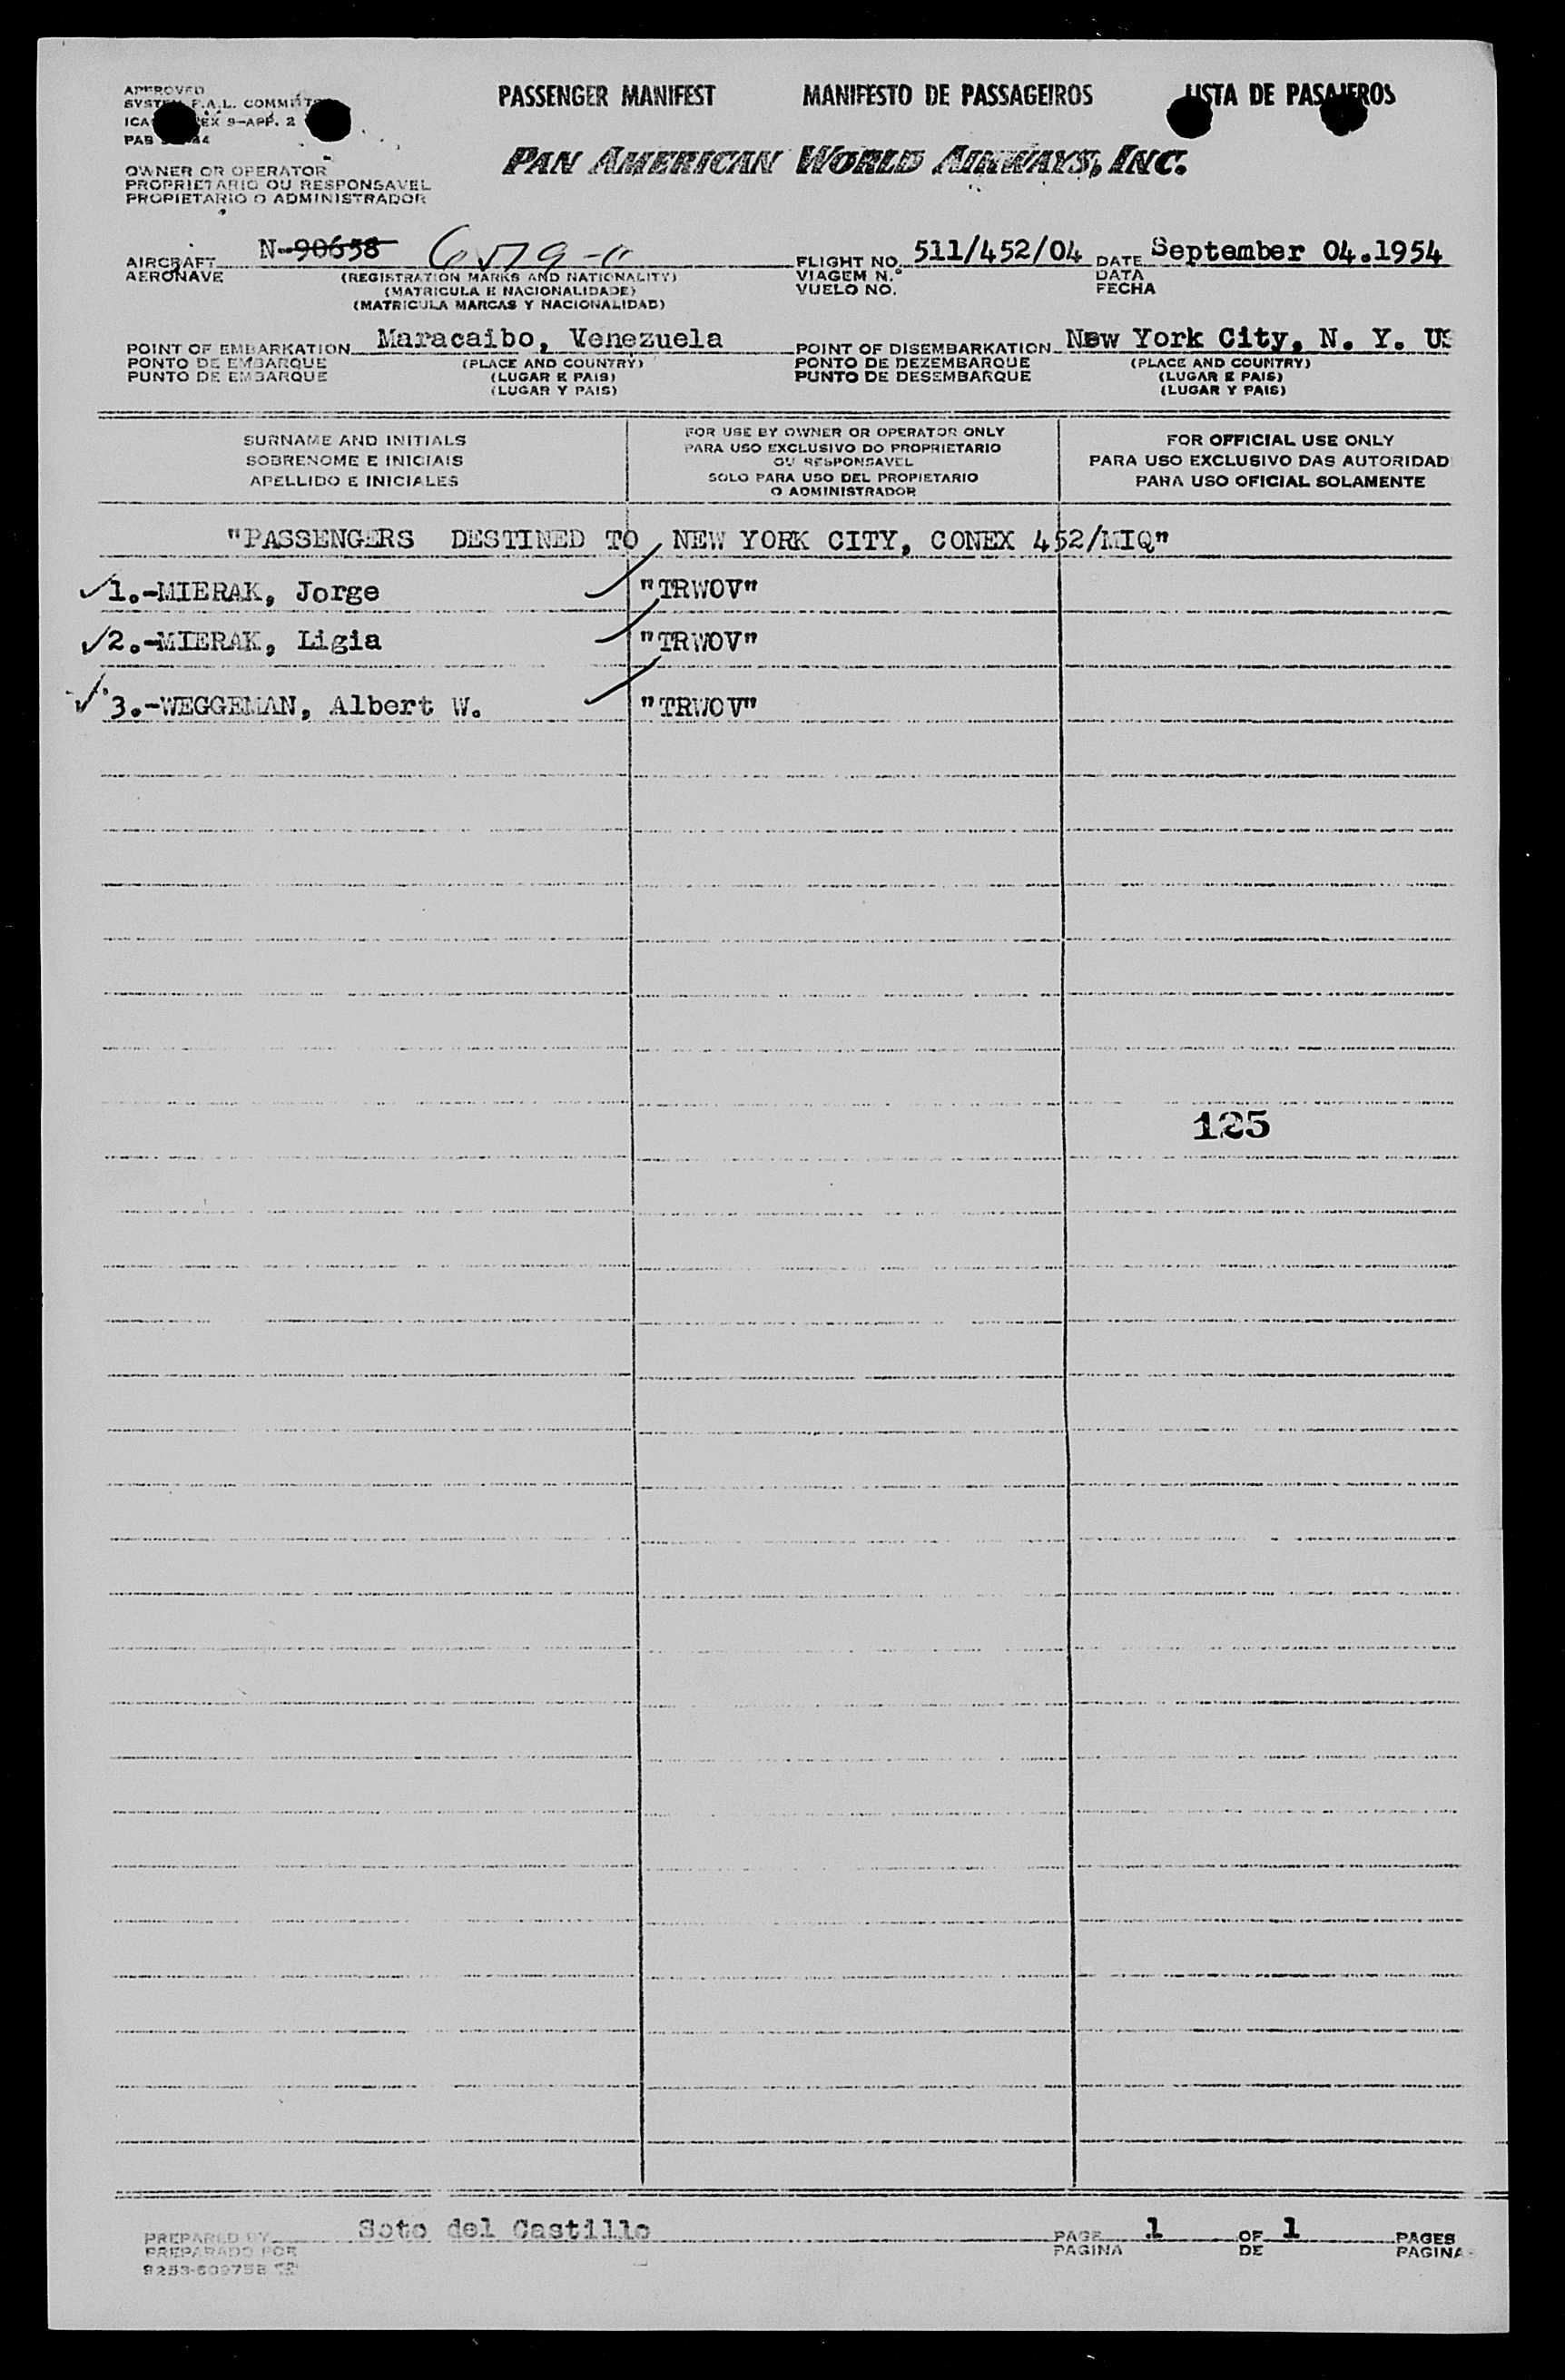 PASSENGER MANIFEST MANIFESTO DE PASSAGEIROS LISTA DE PASAJEROS
APPROVED
SYSTEM F.A.L. COMMITTEE
9-APP. 2
PAB
PAN AMERICAN WORLD AIRWAYS, INC.
OWNER OR OPERATOR
PROPRIETARIO OU RESPONSAVEL
PROPIETARIO O ADMINISTRADOR
AIRCRAFT N-90658 FLIGHT NO. 511/452/04 DATE September 04.1954
AERONAVE (REGISTRATION MARKS AND NATIONALITY) VIAGEM N.º DATA
(MATRICULA E NACIONALIDADE) VUELO NO. FECHA
(MATRICULA MARCAS Y NACIONALIDAD)
POINT OF EMBARKATION Maracaibo, Venezuela POINT OF DISEMBARKATION New York City, N. Y. US
PONTO DE EMBARQUE (PLACE AND COUNTRY) PONTO DE DEZEMBARQUE (PLACE AND COUNTRY)
PUNTO DE EMBARQUE (LUGAR E PAIS) PUNTO DE DESEMBARQUE (LUGAR E PAIS)
(LUGAR Y PAIS) (LUGAR Y PAIS)
SURNAME AND INITIALS
SOBRENOME E INICIAIS
APELLIDO E INICIALES
FOR USE BY OWNER OR OPERATOR ONLY
PARA USO EXCLUSIVO DO PROPRIETARIO
OU RESPONSAVEL
SOLO PARA USO DEL PROPIETARIO
O ADMINISTRADOR
FOR OFFICIAL USE ONLY
PARA USO EXCLUSIVO DAS AUTORIDAD
PARA USO OFICIAL SOLAMENTE
"PASSENGERS DESTINED TO NEW YORK CITY, CONEX 452/MIQ"
1.-MIERAK, Jorge "TRWOV"
2.-MIERAK, Ligia "TRWOV"
3.-WEGGEMAN, Albert W. "TRWOV"
125
PREPARED BY Soto del Castillo PAGE 1 OF 1 PAGES
PREPARADO POR PAGINA DE PAGINAS